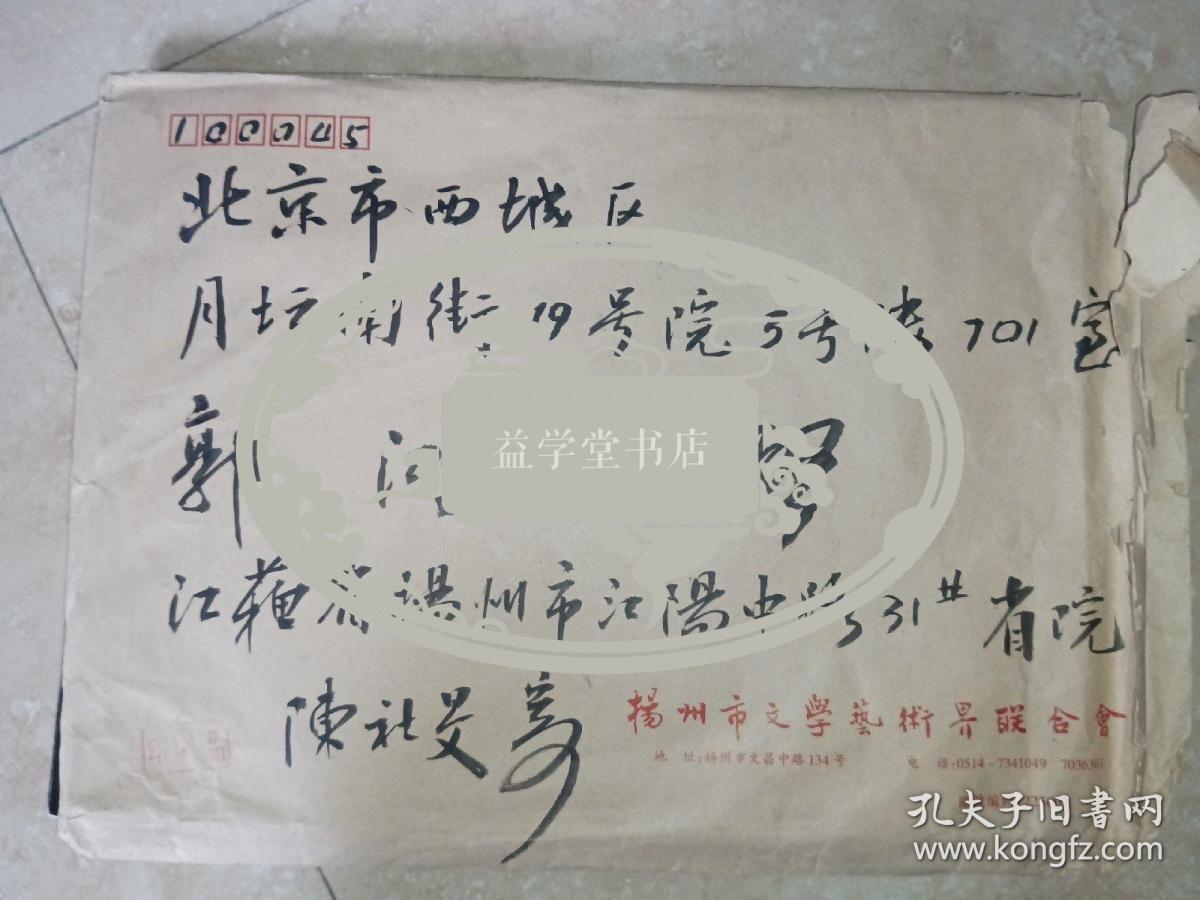 100045
北京市西城区
月坛南街 19号院 5号楼 701室
郭
益学堂书店
江蘇省揚州市江陽中路 31# 省院
陳社旻寄
揚州市文學藝術界联合會
地 址:扬州市文昌中路134号 电 话:0514-7341049 7036361
孔夫子旧书网
www.kongfz.com